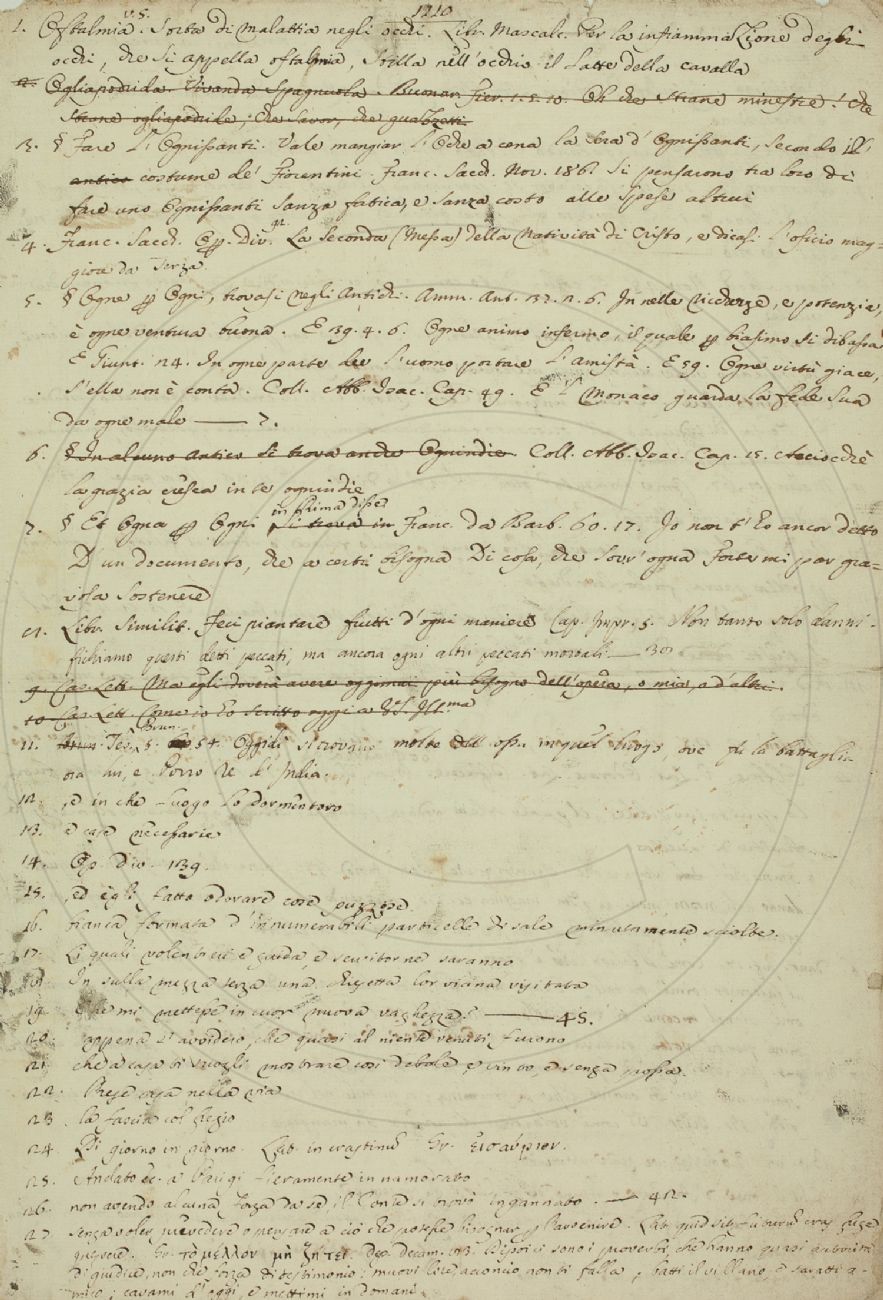 1210
v.s.
1. Oftalmia. Sorta di Malattia negli occhi. Libr. Mascalc. Per la infiammazione degli
occhi, che si appella oftalmia, stilla nell'occhio il latte della cavalla
2. Ogliapodrida. Vivanda Spagnuola. Buonar. Fier. 1. 5. 10. Oh che strane minestre! Che
strane ogliapodride, che savor, che guazzetti.
3. § Fare l'Ognissanti. Vale mangiar l'Oche a cena la sera d'Ognissanti, secondo il
antico costume de' Fiorentini. Franc. Sacch. Nov. 186. Si pensarono tra loro di
fare uno Ognissanti sanza fatica, e sanza costo alle spese altrui
4. Franc. Sacch. Op. Div. La seconda (Messa) della Natività di Cristo, e dicesi l'oficio mag=
giore da Terza.
5. § Ogne per Ogni, trovasi negli Antichi. Amm. Ant. 32. 2. 6. In nelle ricchezze, e potenzie,
è ogne ventura buona. E 39. 4. 6. Ogne animo infermo, il quale per biasimo si dibassa
E Giunt. 24. In ogne parte dee l'uomo portare l'amistà. E 59. Ogne virtù giace,
s'ella non è conta. Coll. Abb. Isac. Cap. 49. E il Monaco guarda la fede sua
da ogne male — 7.
6. § In alcuno antico si trova anche Ognindie. Coll. Abb. Isac. Cap. 15. Acciocchè
la grazia cresca in te ognindie
in rima disse
7. § Et Ogna per Ogni si trova in Franc. da Barb. 60. 17. Io non t'ho ancor detto
D'un documento, che a certi bisogna Di cosa, che sovr'ogna Forte mi par gra=
vosa sostenere
Libr. Similit. Feci piantare frutti d'ogni maniere Cap. Impr. 5. Non tanto solo danni-
fichiamo questi detti peccati, ma ancora ogni altri peccati mortali — 30.
9. Cas. Lett. Ma egli doverà avere oggimai più bisogno dell'opera, o mia, o d'altri
10 Cas. Lett. Come io ho scritto oggi a VS. Ill.ma
Brun.
11. Tes. 5. 54. molte ossa in quel luogo, ove fu la battaglia
tra lui, e Porro Re d'India.
12. , e in che luogo lo dormentoro
13. e case necessarie
14. Op. Div. 139.
15. , ed egli fatto odorare cose puzzose.
16. bianca formata d'innumerabili particelle di sale minutamente sciolte.
17. Li quali volentieri e guida, e servitorne saranno
18. In sulla mezza terza una Chiesetta lor vicina visitata
19. Che mi mettesse in cuor nuova vaghezza? — 45.
20. appena s'avvidero, che quasi al niente venuti furono
21. che a casa ti vuogli mostrare così debole, e vinto e senza possa.
22. Prese casa nella via
23. la fascia col fregio
24. Di giorno in giorno. Lat. in crastinum Gr. εἰσαύριον.
25. Andato ec. a Parigi fieramente innamorato
26. non avendo alcuna forza da se il Conte si trovò ingannato. — 42.
27 senza voler prevedere o pensare a ciò che potesse bisognar per l'avvenire. Lat. quid sit futurum cras fuge
quaerere. Gr. τὸ μέλλον μὴ ζήτει. Dep. Decam. Depoici sono i proverbi, che hanno quasi autorità
di giudice, non che forza di testimonio: muovi lite, acconcio non ti falla, batti il villano, e saratti a-
mico; cavami d'oggi, e mettimi in domani.